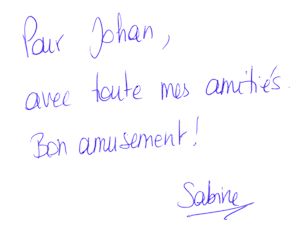 Pour Johan,
avec toute mes amitiés.
Bon amusement!
Sabine